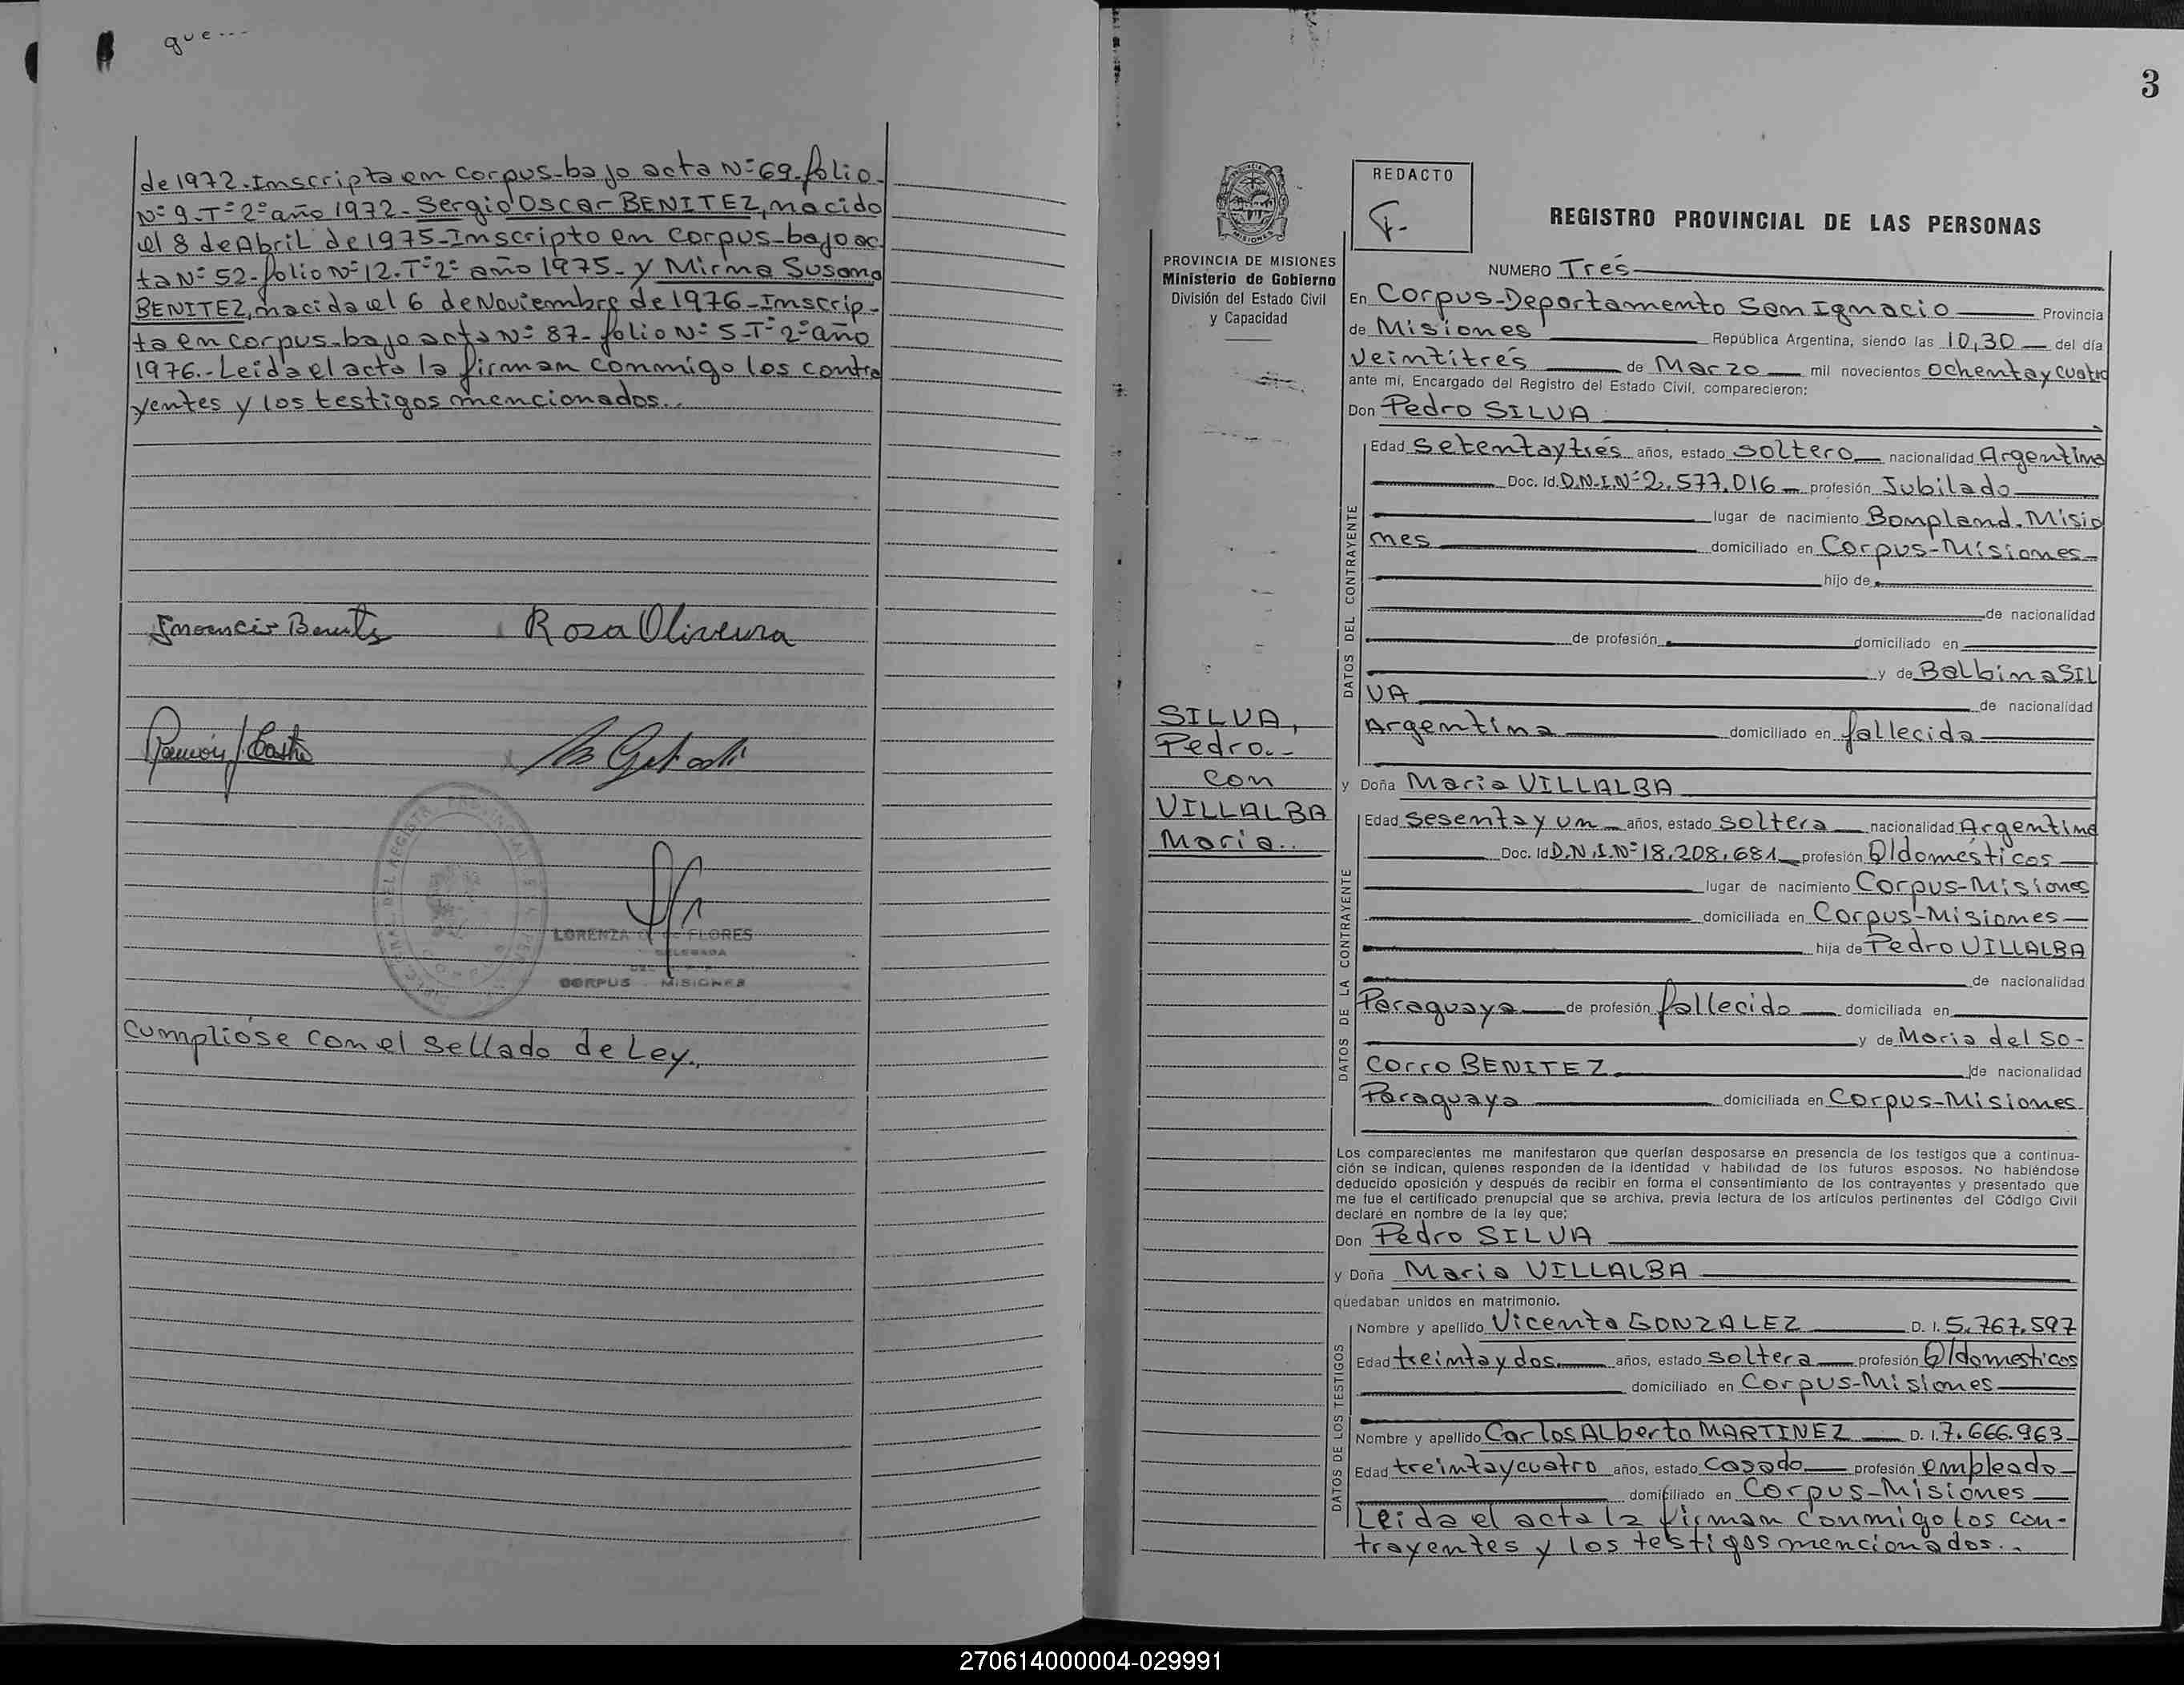 que...
de 1972. Inscripta en Corpus-bajo acta Nº 69-folio-
Nº 9-Tº 2º año 1972- Sergio Oscar BENITEZ, nacido
el 8 de Abril de 1975-Inscripto en Corpus-bajo ac
ta Nº 52-folio Nº 12-Tº 2º año 1975- y Mirma Susana
BENITEZ, nacida el 6 de Noviembre de 1976-Inscrip-
ta en Corpus-bajo acta Nº 87-folio Nº 5-Tº 2º año
1976.-Leida el acta la firman commigo los contra
yentes y los testigos mencionados..
Rosa Oliveira
LORENZA FLORES
DELEGADA
CORPUS MISIONES
Cumplióse con el sellado de Ley.
3
PROVINCIA DE MISIONES
Ministerio de Gobierno
División del Estado Civil
y Capacidad
SILVA,
Pedro.-
con
VILLALBA
Maria..
REDACTO
F.-
REGISTRO PROVINCIAL DE LAS PERSONAS
NUMERO Tres
En Corpus-Departamento San Ignacio Provincia
de Misiones República Argentina, siendo las 10,30 del día
veintitrés de Marzo mil novecientos ochenta y cuatro
ante mí, Encargado del Registro del Estado Civil, comparecieron:
Don Pedro SILVA
DATOS DEL CONTRAYENTE
Edad setenta y trés años, estado soltero nacionalidad Argentina
Doc. Id. D.N.I. Nº 2.577.016 profesión Jubilado
lugar de nacimiento Bompland. Misio
nes domiciliado en Corpus-Misiones
hijo de
de nacionalidad
de profesión domiciliado en
y de Balbina SIL
VA de nacionalidad
Argentina domiciliado en fallecida
y Doña Maria VILLALBA
DATOS DE LA CONTRAYENTE
Edad sesenta y un años, estado soltera nacionalidad Argentina
Doc. Id D.N.I. Nº 18.208.681 profesión Q/domésticos
lugar de nacimiento Corpus-Misiones
domiciliada en Corpus-Misiones
hija de Pedro VILLALBA
de nacionalidad
Paraguaya de profesión fallecido domiciliada en
y de Maria del So-
corro BENITEZ de nacionalidad
Paraguaya domiciliada en Corpus-Misiones
Los comparecientes me manifestaron que querían desposarse en presencia de los testigos que a continua-
ción se indican, quienes responden de la identidad y habilidad de los futuros esposos. No habiéndose
deducido oposición y después de recibir en forma el consentimiento de los contrayentes y presentado que
me fue el certificado prenupcial que se archiva, previa lectura de los artículos pertinentes del Código Civil
declaré en nombre de la ley que:
Don Pedro SILVA
y Doña Maria VILLALBA
quedaban unidos en matrimonio.
DATOS DE LOS TESTIGOS
Nombre y apellido Vicenta GONZALEZ D. I. 5.767.597
Edad treinta y dos años, estado soltera profesión Q/domesticos
domiciliado en Corpus-Misiones
Nombre y apellido Carlos Alberto MARTINEZ D. I. 7.666.963
Edad treinta y cuatro años, estado casado profesión empleado
domiciliado en Corpus-Misiones
Leida el acta la firman conmigo los con-
trayentes y los testigos mencionados..
270614000004-029991